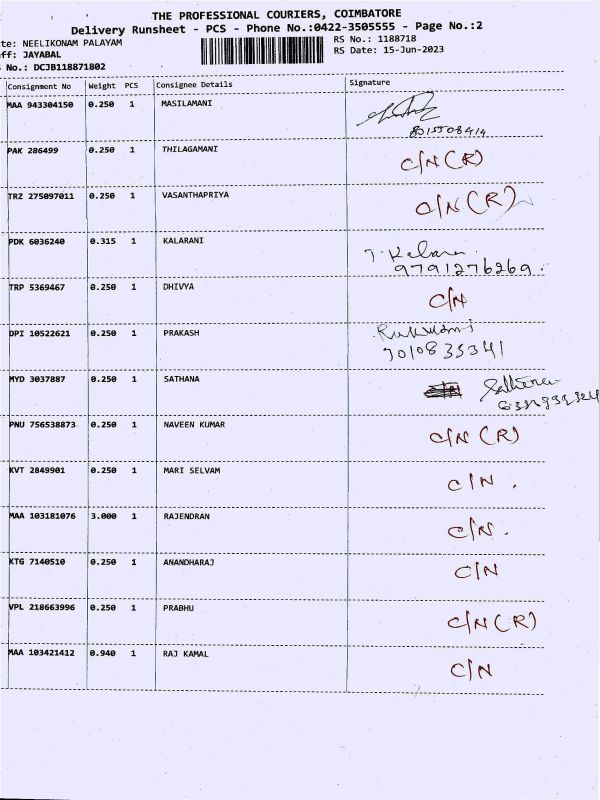 THE PROFESSIONAL COURIERS, COIMBATORE
Delivery Runsheet - PCS - Phone No.:0422-3505555 - Page No.:2
te: NEELIKONAM PALAYAM RS No.: 1188718
ff: JAYABAL RS Date: 15-Jun-2023
No.: DCJB118871802
Consignment No Weight PCS Consignee Details Signature
MAA 943304150 0.250 1 MASILAMANI
PAK 286499 0.250 1 THILAGAMANI C/N (R)
TRZ 275097011 0.250 1 VASANTHAPRIYA C/N (R)
PDK 6036240 0.315 1 KALARANI T. Kalarani
9791276269
TRP 5369467 0.250 1 DHIVYA C/N
DPI 10522621 0.250 1 PRAKASH Rukmani
7010835341
MYD 3037887 0.250 1 SATHANA Sathana
PNU 756538873 0.250 1 NAVEEN KUMAR C/N (R)
KVT 2849901 0.250 1 MARI SELVAM C/N .
MAA 103181076 3.000 1 RAJENDRAN C/N .
KTG 7140510 0.250 1 ANANDHARAJ C/N
VPL 218663996 0.250 1 PRABHU C/N (R)
MAA 103421412 0.940 1 RAJ KAMAL C/N